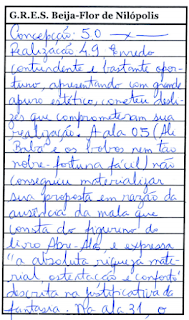 G.R.E.S. Beija-Flor de Nilópolis
Concepção: 5.0
Realização 4.9 Enredo
contundente e bastante opor-
tuno, apresentado com grande
apuro estético, cometeu desli-
zes que comprometeram sua
realização. A ala 05 (Ali
Babá e os robos nem tão
nobre-fortuna fácil) não
conseguiu materializar
sua proposta em razão da
ausência da mala que
consta do figurino do
livro Abre-Alas, e expressa
"a absoluta riqueza mate-
rial, ostentação e conforto"
descrita na justificativa da
fantasia. Na ala 31, o